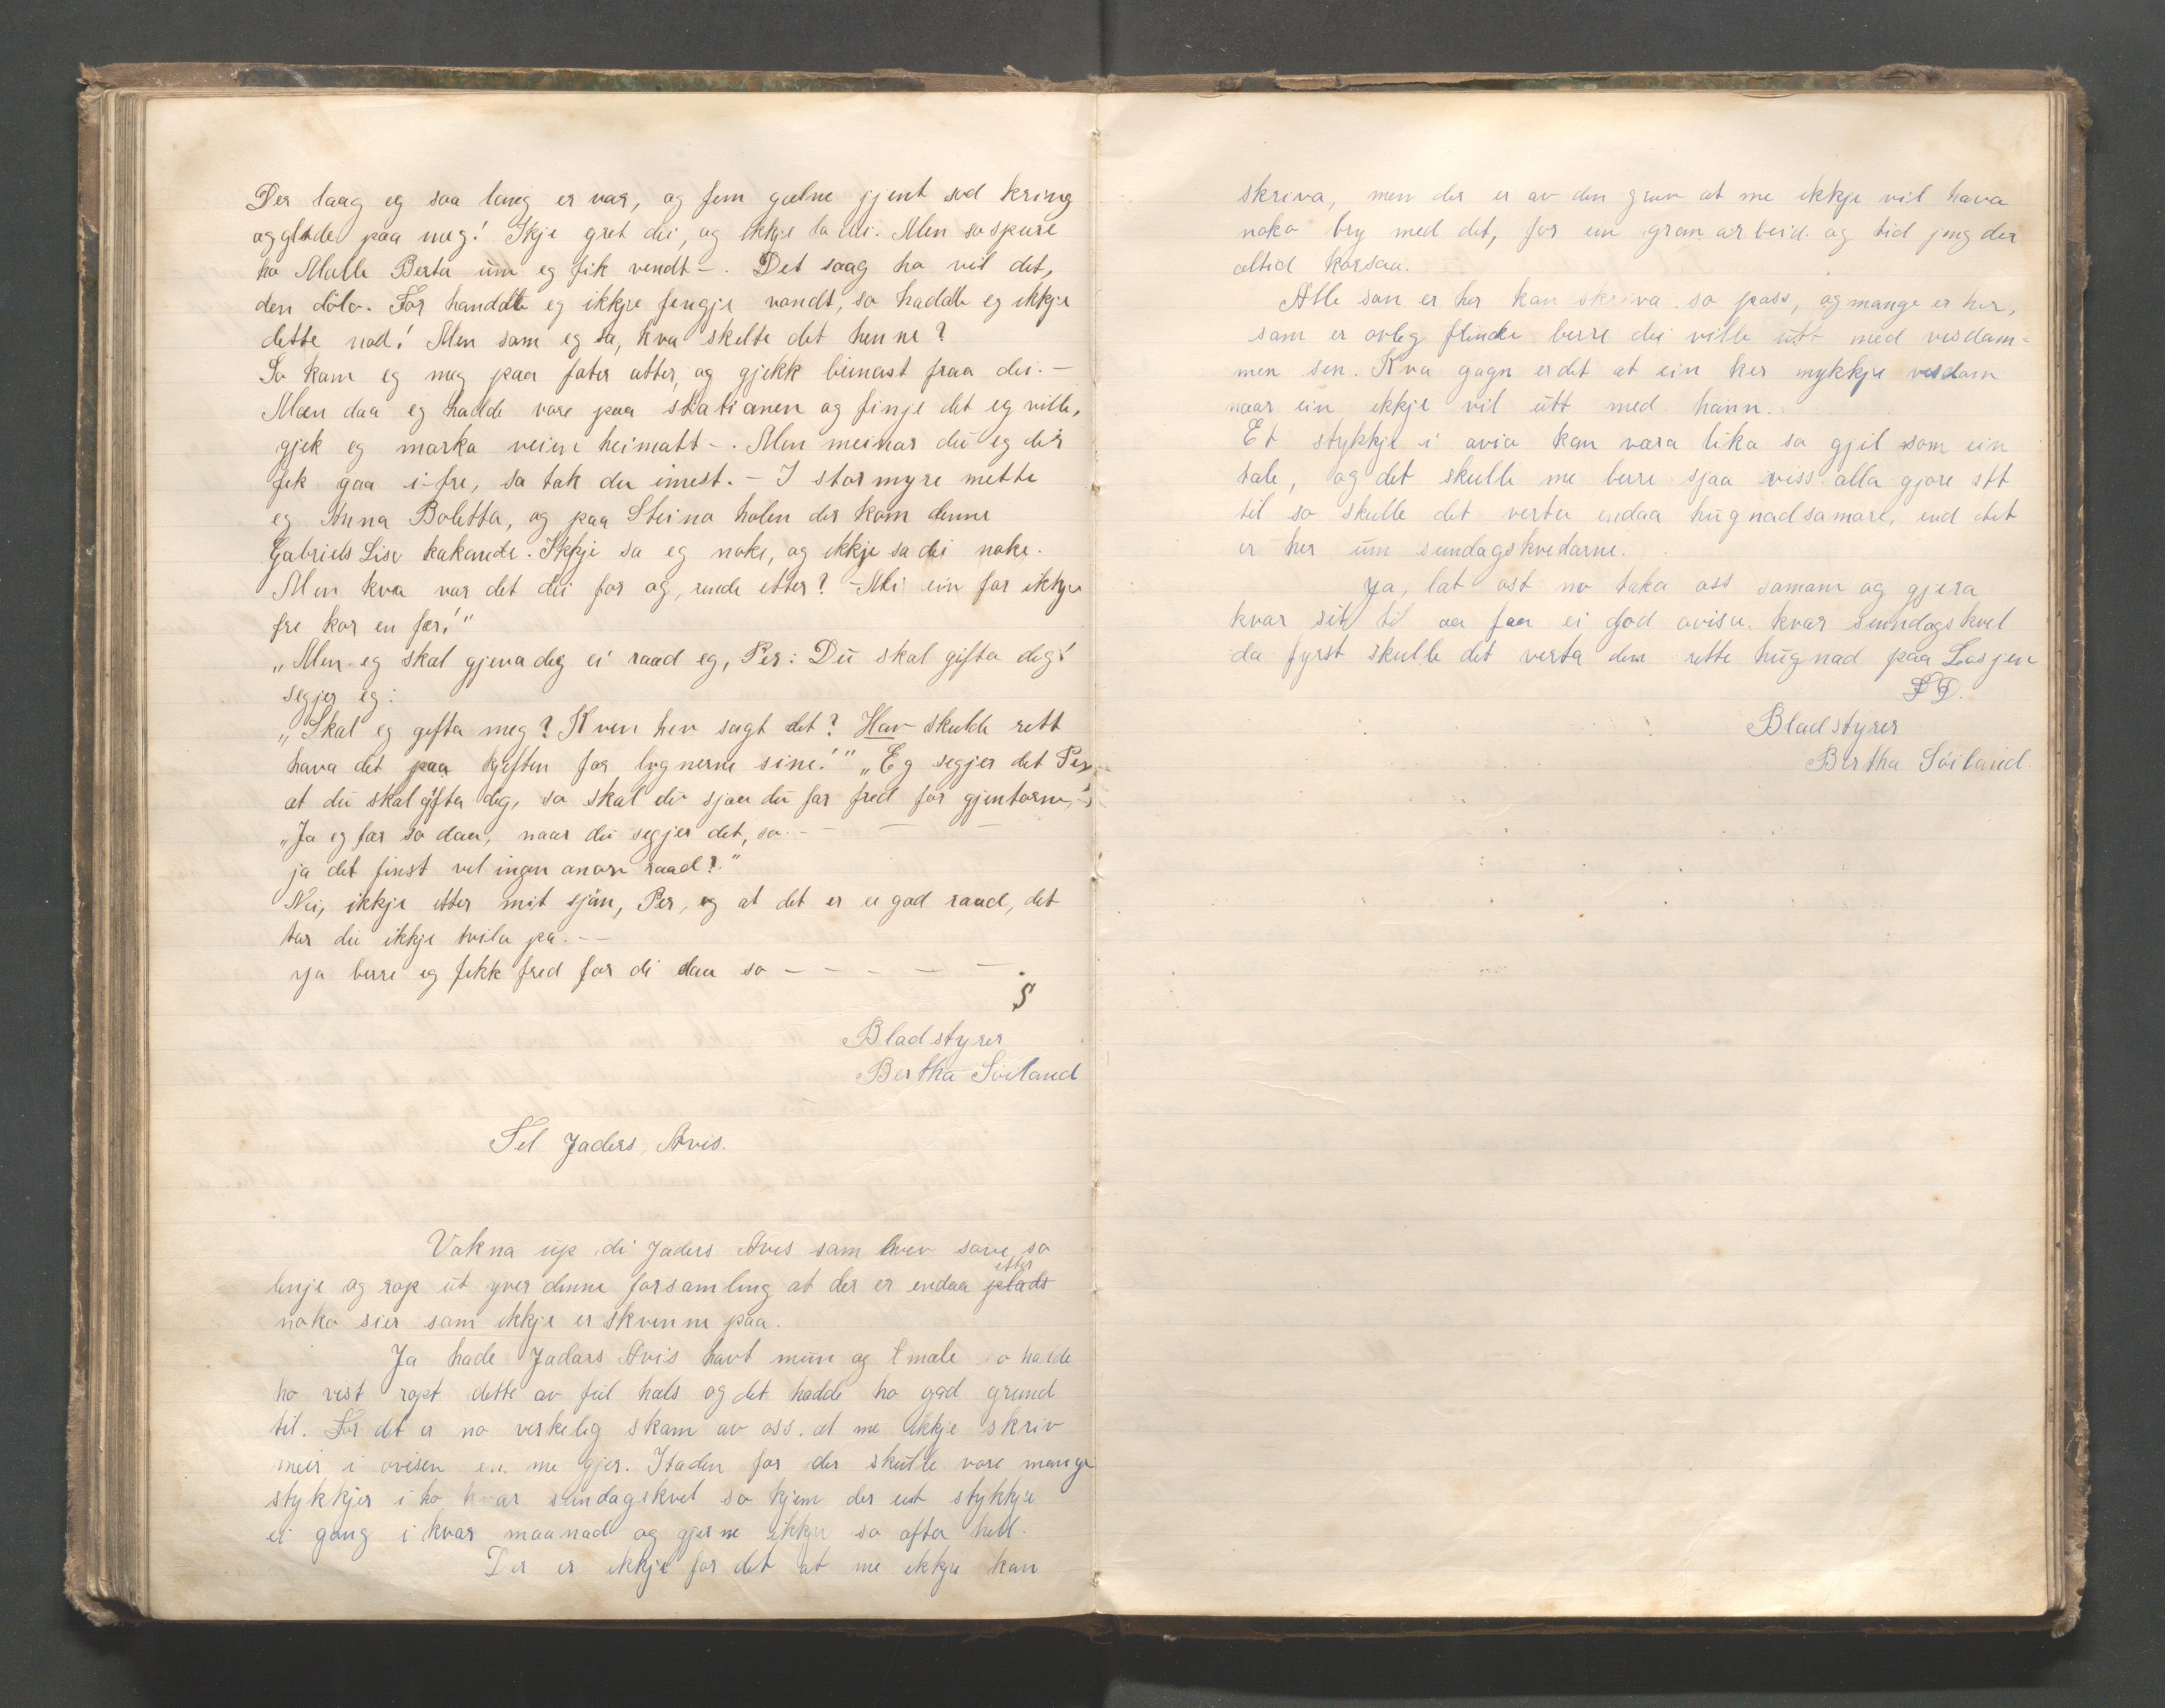 Der laag eg saa laug er var, og fem galne gjent sod kring
og glode paa meg! Ikje gret dei, og ikkje lo dei. Men so spure
ho Malle Berta um eg fik vendt -. Det saag ho vil det,
den dolo. For handde eg ikkje fengje vendt, so hadde eg ikkje
dette nod! Men som eg sa, kva skelte det henne?
So kam eg meg paa føter atter, og gjekk beinast fraa dei. -
Men daa eg hadde vore paa stationen og finje det eg ville,
gjek eg marka veien heimatt -. Men meinar du eg der
fek gaa i fre, so tak du imest. - I stormyre mette
eg Anna Boletta, og paa Steina holen der kom denne
Gabriels Lise kakande. Ikkje sa eg noke, og ikkje sa dei noke.
Men kva var det dei for og, rende etter? - Nei ein får ikkje
fre kor en fer!"
„Men eg skal gjeva deg ei raad eg, Per: Du skal gifta dig!
segjer eg:
„Skal eg gifta meg? Kven hev sagt det? Han skulde rett
hava det paa kjeften for lygnerne sine!" „Eg segjer det Per,
at du skal gifta dig, so skal du sjaa du far fred for gjentorne,"
„Ja eg far so daa, naar du segjer det, so - - -
ja det finst vel ingen anorn raad?"
Nei, ikkje etter mit sjön, Per, og at det er ei god raad, det
tar du ikkje tvila pa. - -
Ja berre eg fekk fred for di daa so - - - - -
S
Bladstyrer
Bertha Söiland
Tel Jaders Avis.
Vakna up di Jaders Avis som hver sove so
lenje og rop ut yver denne forsamling at der er endaa plads etter
noko sier som ikkje er skrenne paa.
Ja hade Jadars Avis havt mun og male so hadde
ho vist ropt dette av ful hals og det hadde ho god grund
til. For det er no verkelig skam av oss. at me ikkje skriv
meir i avisen en me gjer. Istaden for der skulle vore mange
stykkjer i ho kvar sundagskvel so kjem der eit stykkje
ei gong i kvar maanad og gjerne ikkje so ofta hell.
Der er ikkje for det at me ikkje kan
skriva, men der er av den grun at me ikkje vil hava
noko bry med det, for ein gran arbeid og tid jeng der
altid korsaa.
Alle son er her kan skriva so pass, og mange er her,
som er ovleg flinke berre dei ville ut med visdam-
men sin. Kva gagn er det at ein hev mykkje visdom
naar ein ikkje vil utt med hann.
Et stykkje i avia kan vara lika so gjil som ein
tale, og det skulle me berre sjaa viss alla gjore sit
til so skulle det verta endaa hugnadsamare, end det
er her um sundagskvedarne.
Ja, lat ost no taka oss samam og gjera
kvar sit til aa faa ei god avisa kvar sundagskvel
da fyrst skulle det verta den rette hugnad paa Losjen
Bladstyrer
Bertha Söiland.